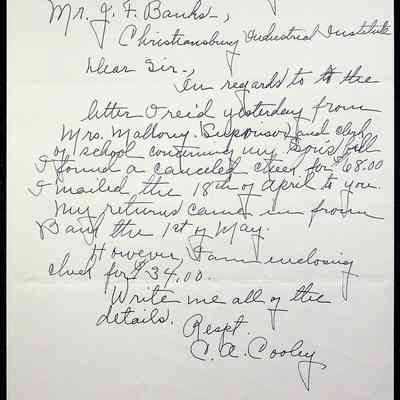 Mr. J. F. Banks,
Christiansburg Industrial Institute
Dear Sir.,
In regards to the
letter I rec'd yesterday from
Mrs. Mallory Supervisor and clerk
of school concerning my son's bill
I found a canceled check for $68.00
I mailed the 18th of April to you.
My returns came in from
Bank the 1st of May.
However, I am inclosing
check for $34.00.
Write me all of the
details. Respt.
C. A. Cooley